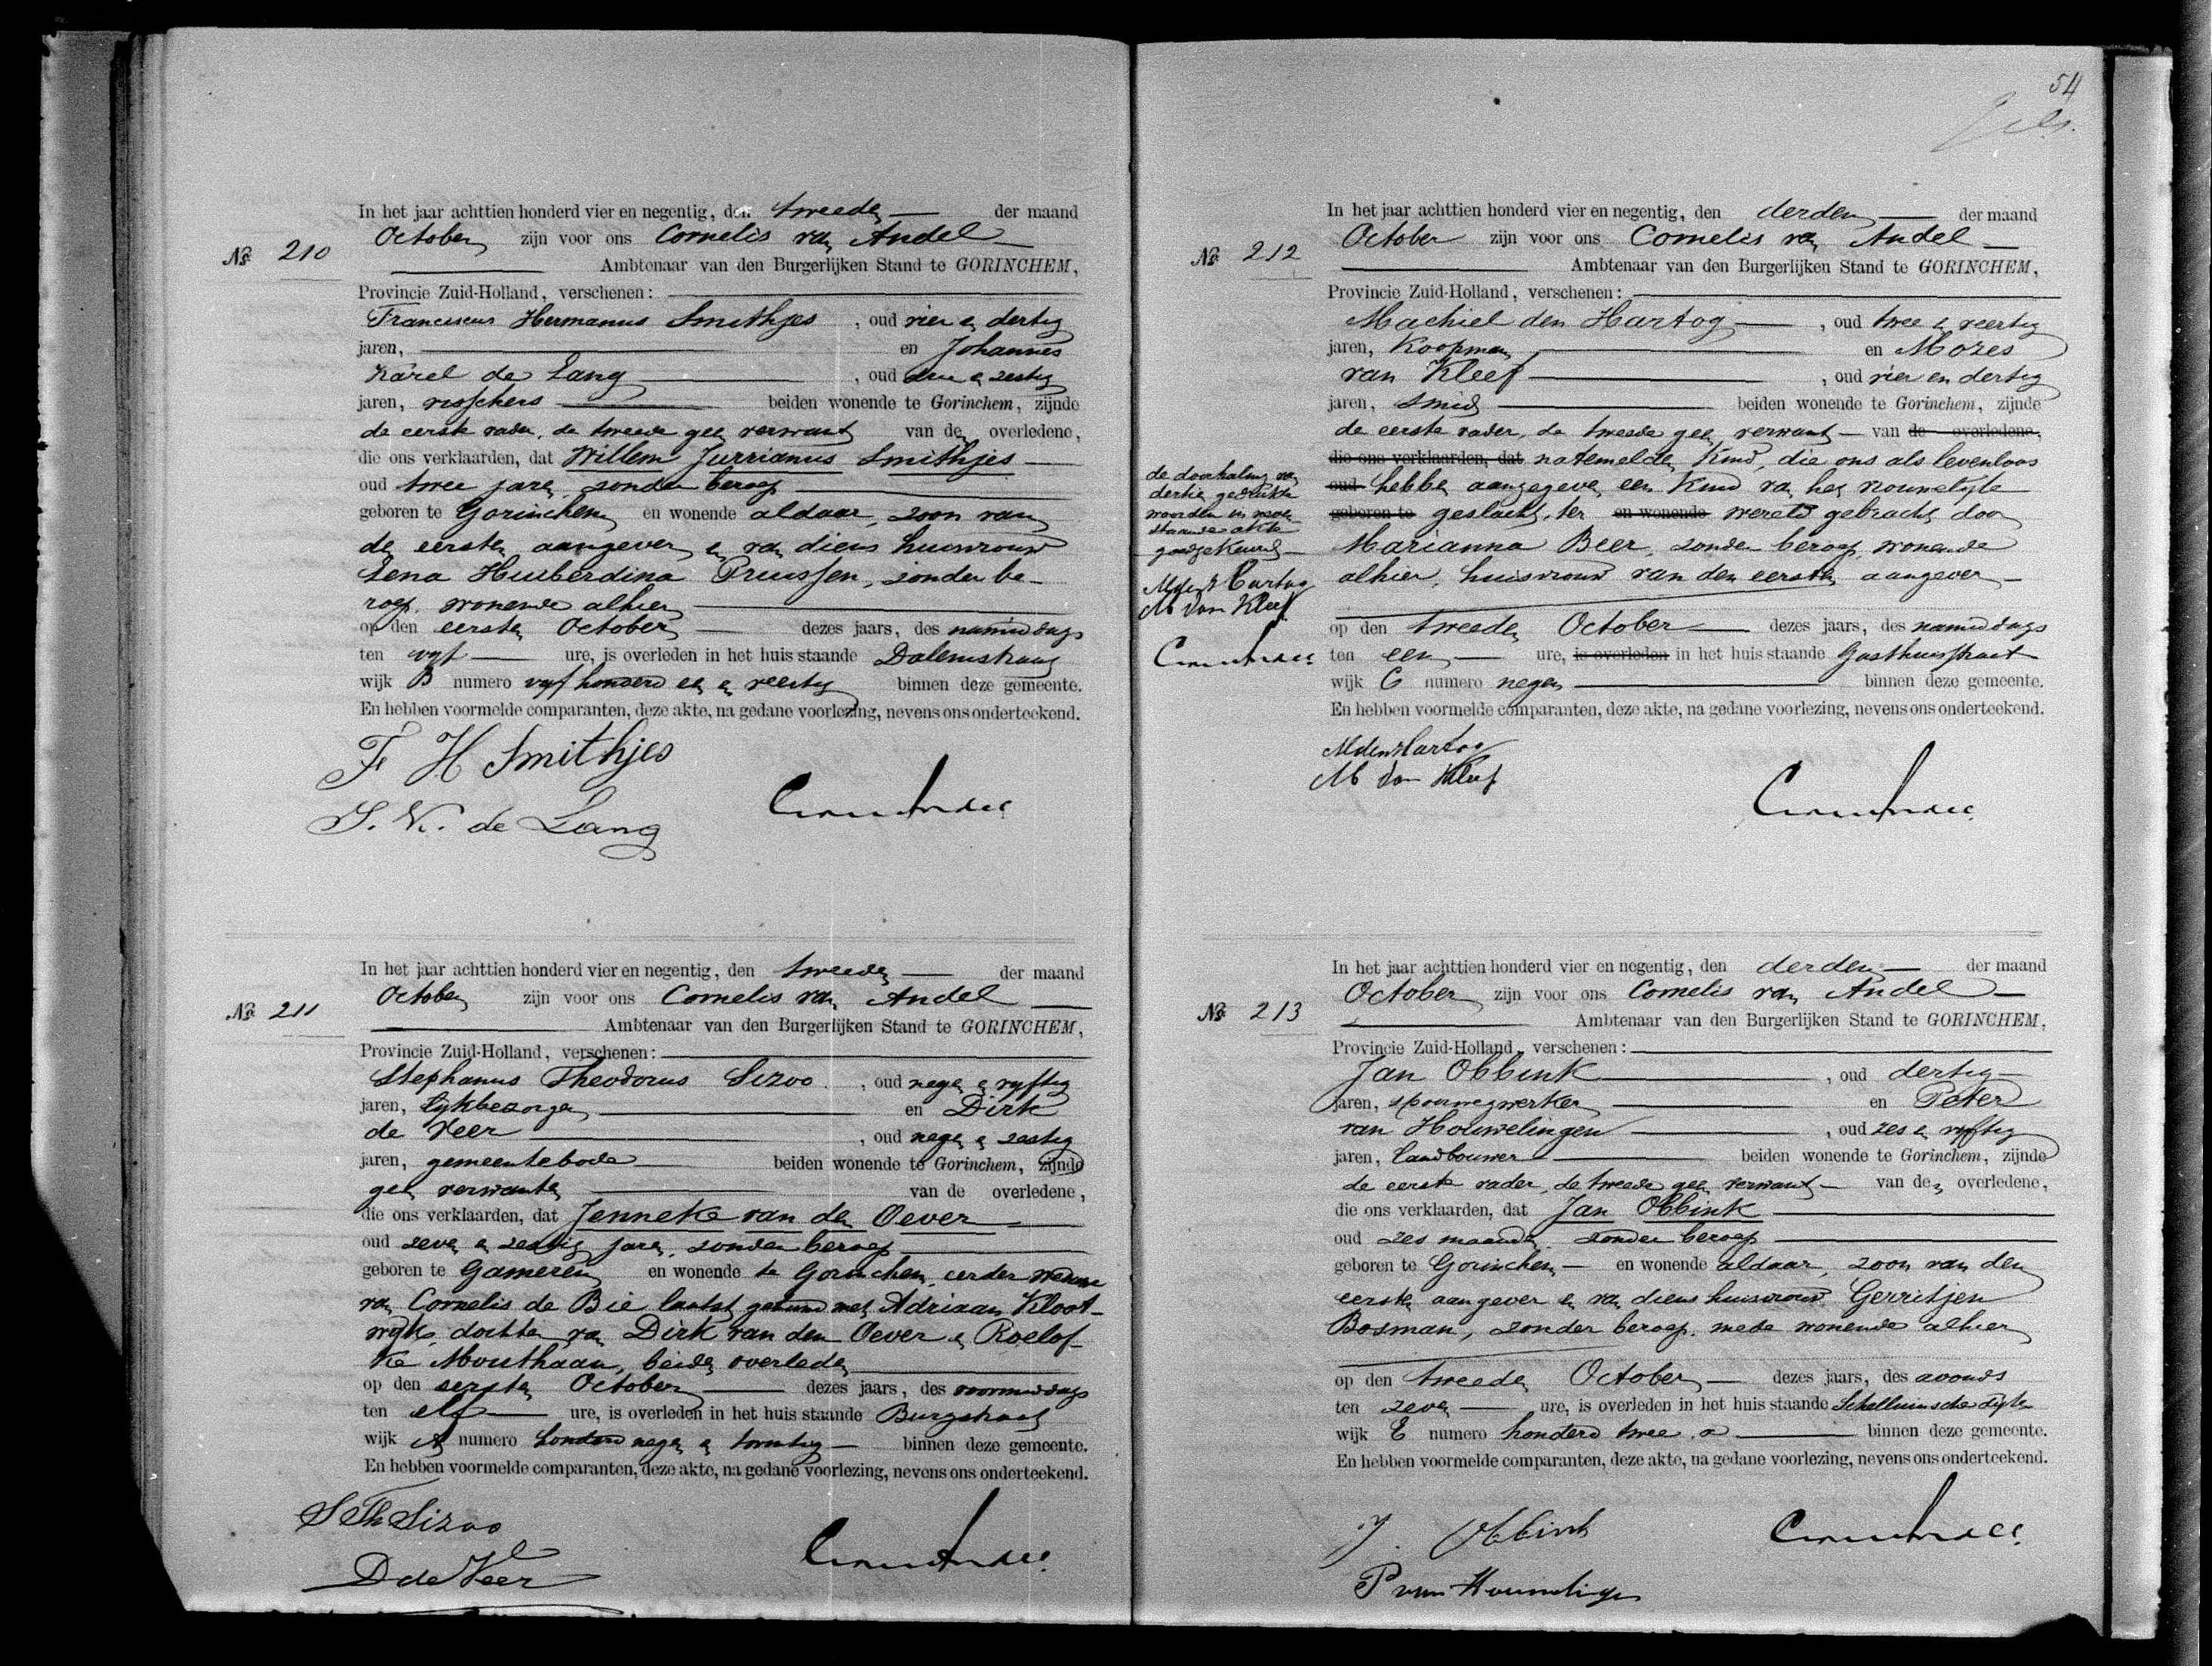 In het jaar achttien honderd vier en negentig, den tweeden der maand
October zijn voor ons Cornelis van Andel
No 210
Ambtenaar van den Burgerlijken Stand te GORINCHEM,
Provincie Zuid-Holland, verschenen:
Franciscus Hermanus Smithjes, oud vier en dertig
jaren, en Johannes
Karel de Lang, oud drie en zestig
jaren, visschers beiden wonende te Gorinchem, zijnde
de eerste vader, de tweede geen verwant van den overledene,
die ons verklaarden, dat Willem Jurrianus Smithjes
oud twee jaren, zonder beroep
geboren te Gorinchem en wonende aldaar, zoon van
den eersten aangever en van diens huisvrouw
Lena Huiberdina Pruissen, zonder be-
roep, wonende alhier
op den eersten October dezes jaars, des namiddags
ten vyf ure, is overleden in het huis staande Dalemstraat
wijk B numero vyf honderd een en veertig binnen deze gemeente.
En hebben voormelde comparanten, deze akte, na gedane voorlezing, nevens ons onderteekend.
F H Smithjes
J. K. de Lang
C van Andel
In het jaar achttien honderd vier en negentig, den tweeden der maand
October zijn voor ons Cornelis van Andel
No 211
Ambtenaar van den Burgerlijken Stand te GORINCHEM,
Provincie Zuid-Holland, verschenen:
Stephanus Theodorus Sizoo, oud negen en vyftig
jaren, Lykbezorger en Dirk
de Veer, oud negen en zestig
jaren, gemeentebode beiden wonende te Gorinchem, zijnde
geen verwanten van de overledene,
die ons verklaarden, dat Jenneke van den Oever
oud zeven en zestig jaren, zonder beroep
geboren te Gameren en wonende te Gorinchem, eerder weduwe
van Cornelis de Bie laatst gehuwd met Adriaan Kloot-
wyk, dochter van Dirk van den Oever en Roelof-
ke Mouthaan, beiden overleden
op den eersten October dezes jaars, des voormiddags
ten elf ure, is overleden in het huis staande Burgstraat
wijk A numero honderd negen en twintig binnen deze gemeente.
En hebben voormelde comparanten, deze akte, na gedane voorlezing, nevens ons onderteekend.
S Th Sizoo
D de Veer
C van Andel
54
In het jaar achttien honderd vier en negentig, den derden der maand
October zijn voor ons Cornelis van Andel
No 212
Ambtenaar van den Burgerlijken Stand te GORINCHEM,
Provincie Zuid-Holland, verschenen:
Machiel den Hartog, oud twee en veertig
jaren, Koopman en Mozes
van Kleef, oud vier en dertig
jaren, Smid beiden wonende te Gorinchem, zijnde
de eerste vader, de tweede geen verwant van de overledene,
die ons verklaarden, dat natemelden Kind, die ons als levenloos
oud hebben aangegeven een Kind van het vrouwelyke
geboren te geslacht, ter en wonende wereld gebracht door
Marianna Beer, zonder beroep, wonende
alhier, huisvrouw van den eersten aangever
op den tweeden October dezes jaars, des namiddags
ten een ure, is overleden in het huis staande Gasthuisstraat
wijk C numero negen binnen deze gemeente.
En hebben voormelde comparanten, deze akte, na gedane voorlezing, nevens ons onderteekend.
de doorhaling van
dertien gedrukte
woorden in neven-
staande akte
goedgekeurd
M den Hartog
M van Kleef
C van Andel
M den Hartog
M van Kleef
C van Andel
In het jaar achttien honderd vier en negentig, den derden der maand
October zijn voor ons Cornelis van Andel
No 213
Ambtenaar van den Burgerlijken Stand te GORINCHEM,
Provincie Zuid-Holland, verschenen:
Jan Obbink, oud dertig
jaren, spoorwegwerker en Peter
van Houwelingen, oud zes en vyftig
jaren, Landbouwer beiden wonende te Gorinchem, zijnde
de eerste vader, de tweede geen verwant van den overledene,
die ons verklaarden, dat Jan Obbink
oud zes maanden, zonder beroep
geboren te Gorinchem en wonende aldaar, zoon van den
eersten aangever en van diens huisvrouw Gerritjen
Bosman, zonder beroep, mede wonende alhier
op den tweeden October dezes jaars, des avonds
ten zeven ure, is overleden in het huis staande Schelluinschedyk
wijk E numero honderd twee a binnen deze gemeente.
En hebben voormelde comparanten, deze akte, na gedane voorlezing, nevens ons onderteekend.
J. Obbink
P van Houwelingen
C van Andel